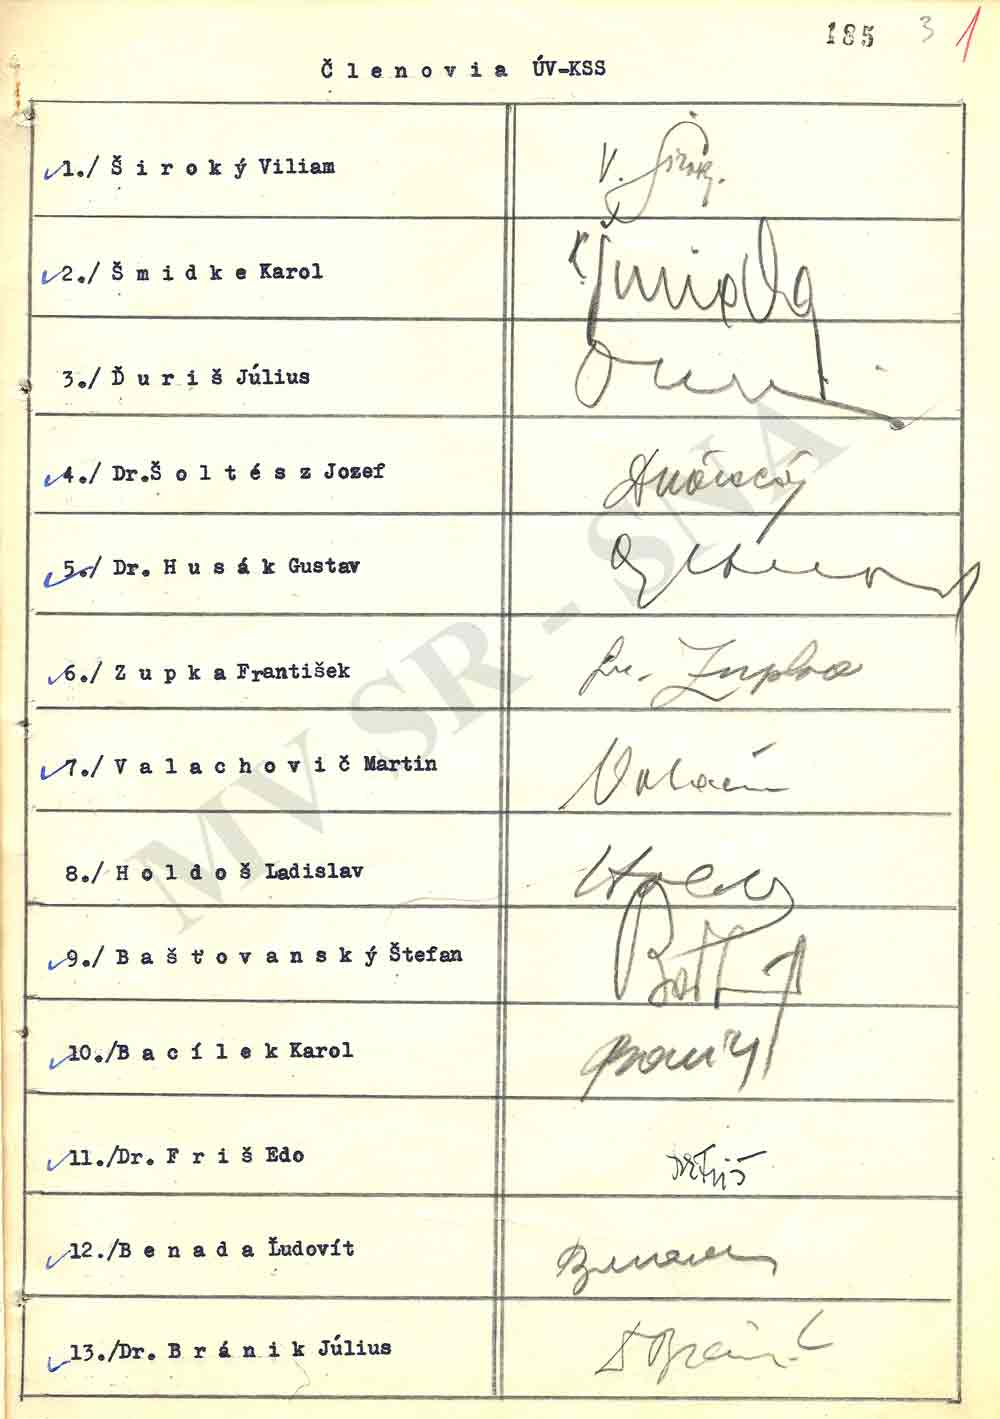 185 3 1
Členovia ÚV-KSS
1./ Široký Viliam V. Široky.
2./ Šmidke Karol K. Šmidke
3./ Ďuriš Július
4./ Dr.Šoltész Jozef
5./ Dr. Husák Gustav
6./ Zupka František Fr. Zupka
7./ Valachovič Martin
8./ Holdoš Ladislav
9./ Bašťovanský Štefan
10./Bacílek Karol
11./Dr. Friš Edo Dr Friš
12./Benada Ľudovít Benada
13./Dr. Bránik Július
MV SR - SNA